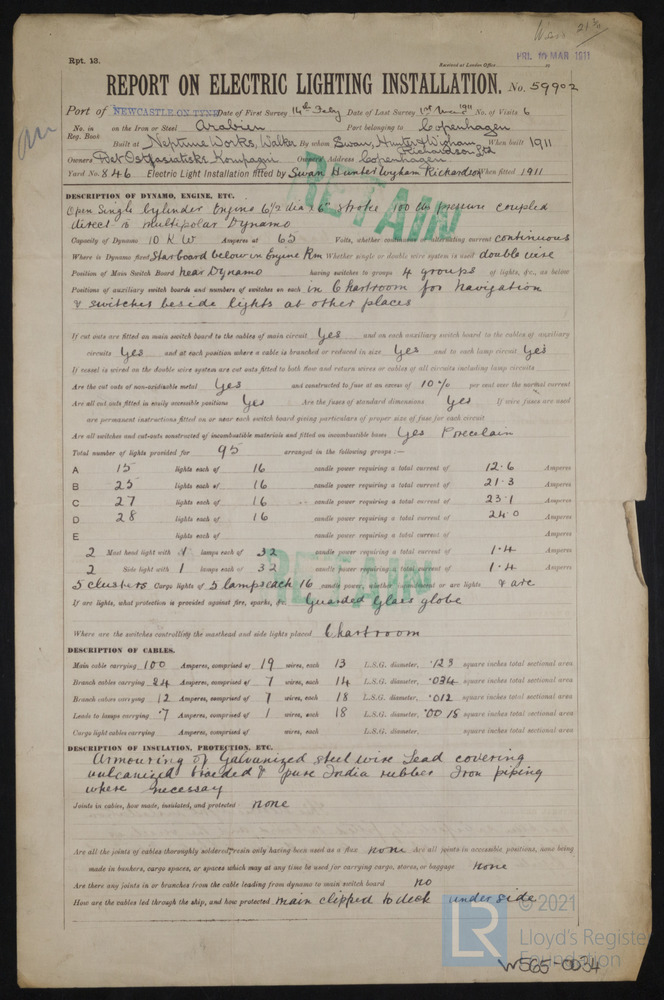 21
Rpt. 13.
Received at London Office
PRL 10 MAR 1911
REPORT ON ELECTRIC LIGHTING INSTALLATION. No. 59902
Port of NEWCASTLE ON TYNE Date of First Survey 14th Feby Date of Last Survey 1st 1911 No. of Visits 6
No. in Reg. Book on the Iron or Steel Arabien Port belonging to Copenhagen
Built at Neptune Works, Walker By whom Swan, Hunter & Wigham Richardson Ltd When built 1911
Owners Det Ostasiatiske Kompagni Owners' Address Copenhagen
Yard No. 846 Electric Light Installation fitted by Swan Hunter Wigham Richardson When fitted 1911
RETAIN
DESCRIPTION OF DYNAMO, ENGINE, ETC.
Open Single Cylinder Engine 6 1/2 dia x 6" stroke 100 lbs pressure coupled
direct to Multipolar Dynamo
Capacity of Dynamo 10 KW Amperes at 65 Volts, whether continuous or alternating current continuous
Where is Dynamo fixed Starboard below in Engine Rm Whether single or double wire system is used double wire
Position of Main Switch Board near Dynamo having switches to groups 4 groups of lights, &c., as below
Positions of auxiliary switch boards and numbers of switches on each in Chartroom for Navigation
& switches beside lights at other places
If cut outs are fitted on main switch board to the cables of main circuit Yes and on each auxiliary switch board to the cables of auxiliary
circuits Yes and at each position where a cable is branched or reduced in size Yes and to each lamp circuit Yes
If vessel is wired on the double wire system are cut outs fitted to both flow and return wires or cables of all circuits including lamp circuits
Are the cut outs of non-oxidizable metal Yes and constructed to fuse at an excess of 10% per cent over the normal current
Are all cut outs fitted in easily accessible positions Yes Are the fuses of standard dimensions Yes If wire fuses are used
are permanent instructions fitted on or near each switch board giving particulars of proper size of fuse for each circuit
Are all switches and cut-outs constructed of incombustible materials and fitted on incombustible bases Yes Porcelain
Total number of lights provided for 95 arranged in the following groups :—
A 15 lights each of 16 candle power requiring a total current of 12.6 Amperes
B 25 lights each of 16 candle power requiring a total current of 21.3 Amperes
C 27 lights each of 16 candle power requiring a total current of 23.1 Amperes
D 28 lights each of 16 candle power requiring a total current of 24.0 Amperes
E lights each of candle power requiring a total current of Amperes
2 Mast head light with 1 lamps each of 32 candle power requiring a total current of 1.4 Amperes
2 Side light with 1 lamps each of 32 candle power requiring a total current of 1.4 Amperes
5 clusters Cargo lights of 5 lamps each 16 candle power, whether incandescent or arc lights & arc
RETAIN
If arc lights, what protection is provided against fire, sparks, &c. Guarded glass globe
Where are the switches controlling the masthead and side lights placed Chartroom
DESCRIPTION OF CABLES.
Main cable carrying 100 Amperes, comprised of 19 wires, each 13 L.S.G. diameter, .123 square inches total sectional area
Branch cables carrying 24 Amperes, comprised of 7 wires, each 14 L.S.G. diameter, .034 square inches total sectional area
Branch cables carrying 12 Amperes, comprised of 7 wires, each 18 L.S.G. diameter, .012 square inches total sectional area
Leads to lamps carrying .7 Amperes, comprised of 1 wires, each 18 L.S.G. diameter, .0018 square inches total sectional area
Cargo light cables carrying Amperes, comprised of wires, each L.S.G. diameter, square inches total sectional area
DESCRIPTION OF INSULATION, PROTECTION, ETC.
Armouring of Galvanized steel wire Lead covering
vulcanized braided & pure India rubber Iron piping
where necessay
Joints in cables, how made, insulated, and protected none
Are all the joints of cables thoroughly soldered, resin only having been used as a flux none Are all joints in accessible positions, none being
made in bunkers, cargo spaces, or spaces which may at any time be used for carrying cargo, stores, or baggage none
Are there any joints in or branches from the cable leading from dynamo to main switch board no
How are the cables led through the ship, and how protected main clipped to deck under side
LR © 2021
Lloyd's Register
Foundation
W565-0034